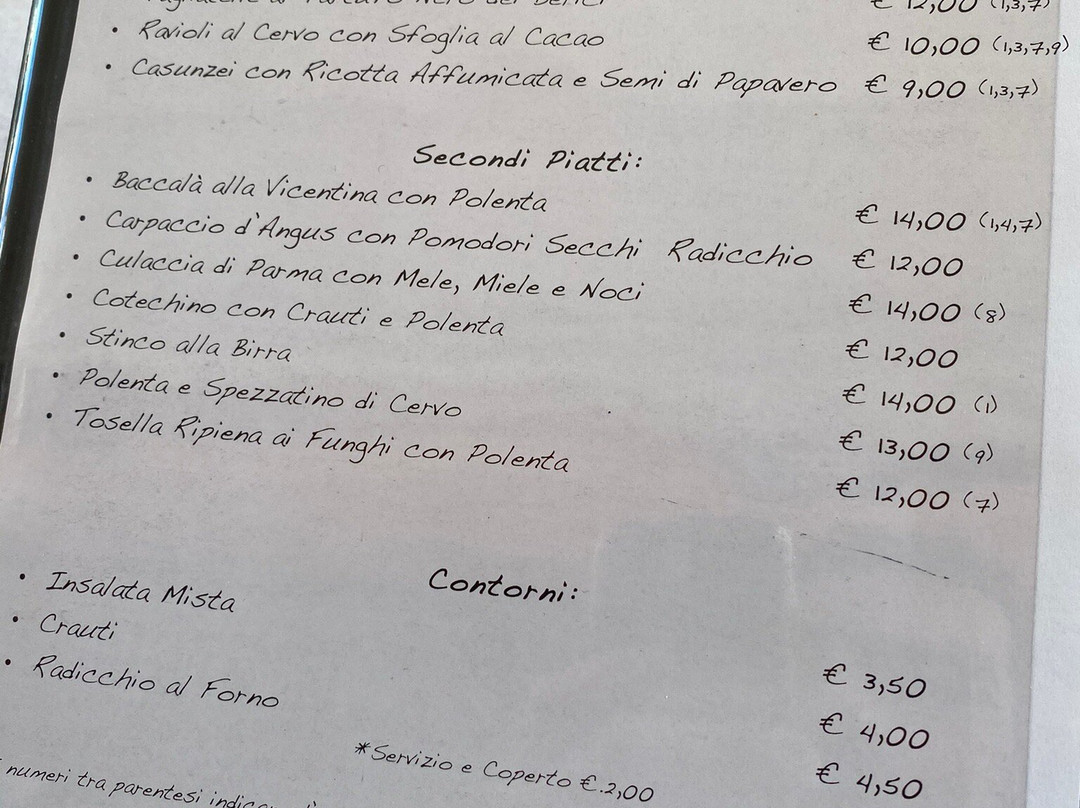 € 12,00 (1,3,7)
• Ravioli al Cervo con Sfoglia al Cacao € 10,00 (1,3,7,9)
• Casunzei con Ricotta Affumicata e Semi di Papavero € 9,00 (1,3,7)
Secondi Piatti:
• Baccalà alla Vicentina con Polenta € 14,00 (1,4,7)
• Carpaccio d'Angus con Pomodori Secchi Radicchio € 12,00
• Culaccia di Parma con Mele, Miele e Noci € 14,00 (8)
• Cotechino con Crauti e Polenta € 12,00
• Stinco alla Birra € 14,00 (1)
• Polenta e Spezzatino di Cervo € 13,00 (9)
• Tosella Ripiena ai Funghi con Polenta € 12,00 (7)
Contorni:
• Insalata Mista € 3,50
• Crauti € 4,00
• Radicchio al Forno € 4,50
*Servizio e Coperto €.2,00
numeri tra parentesi